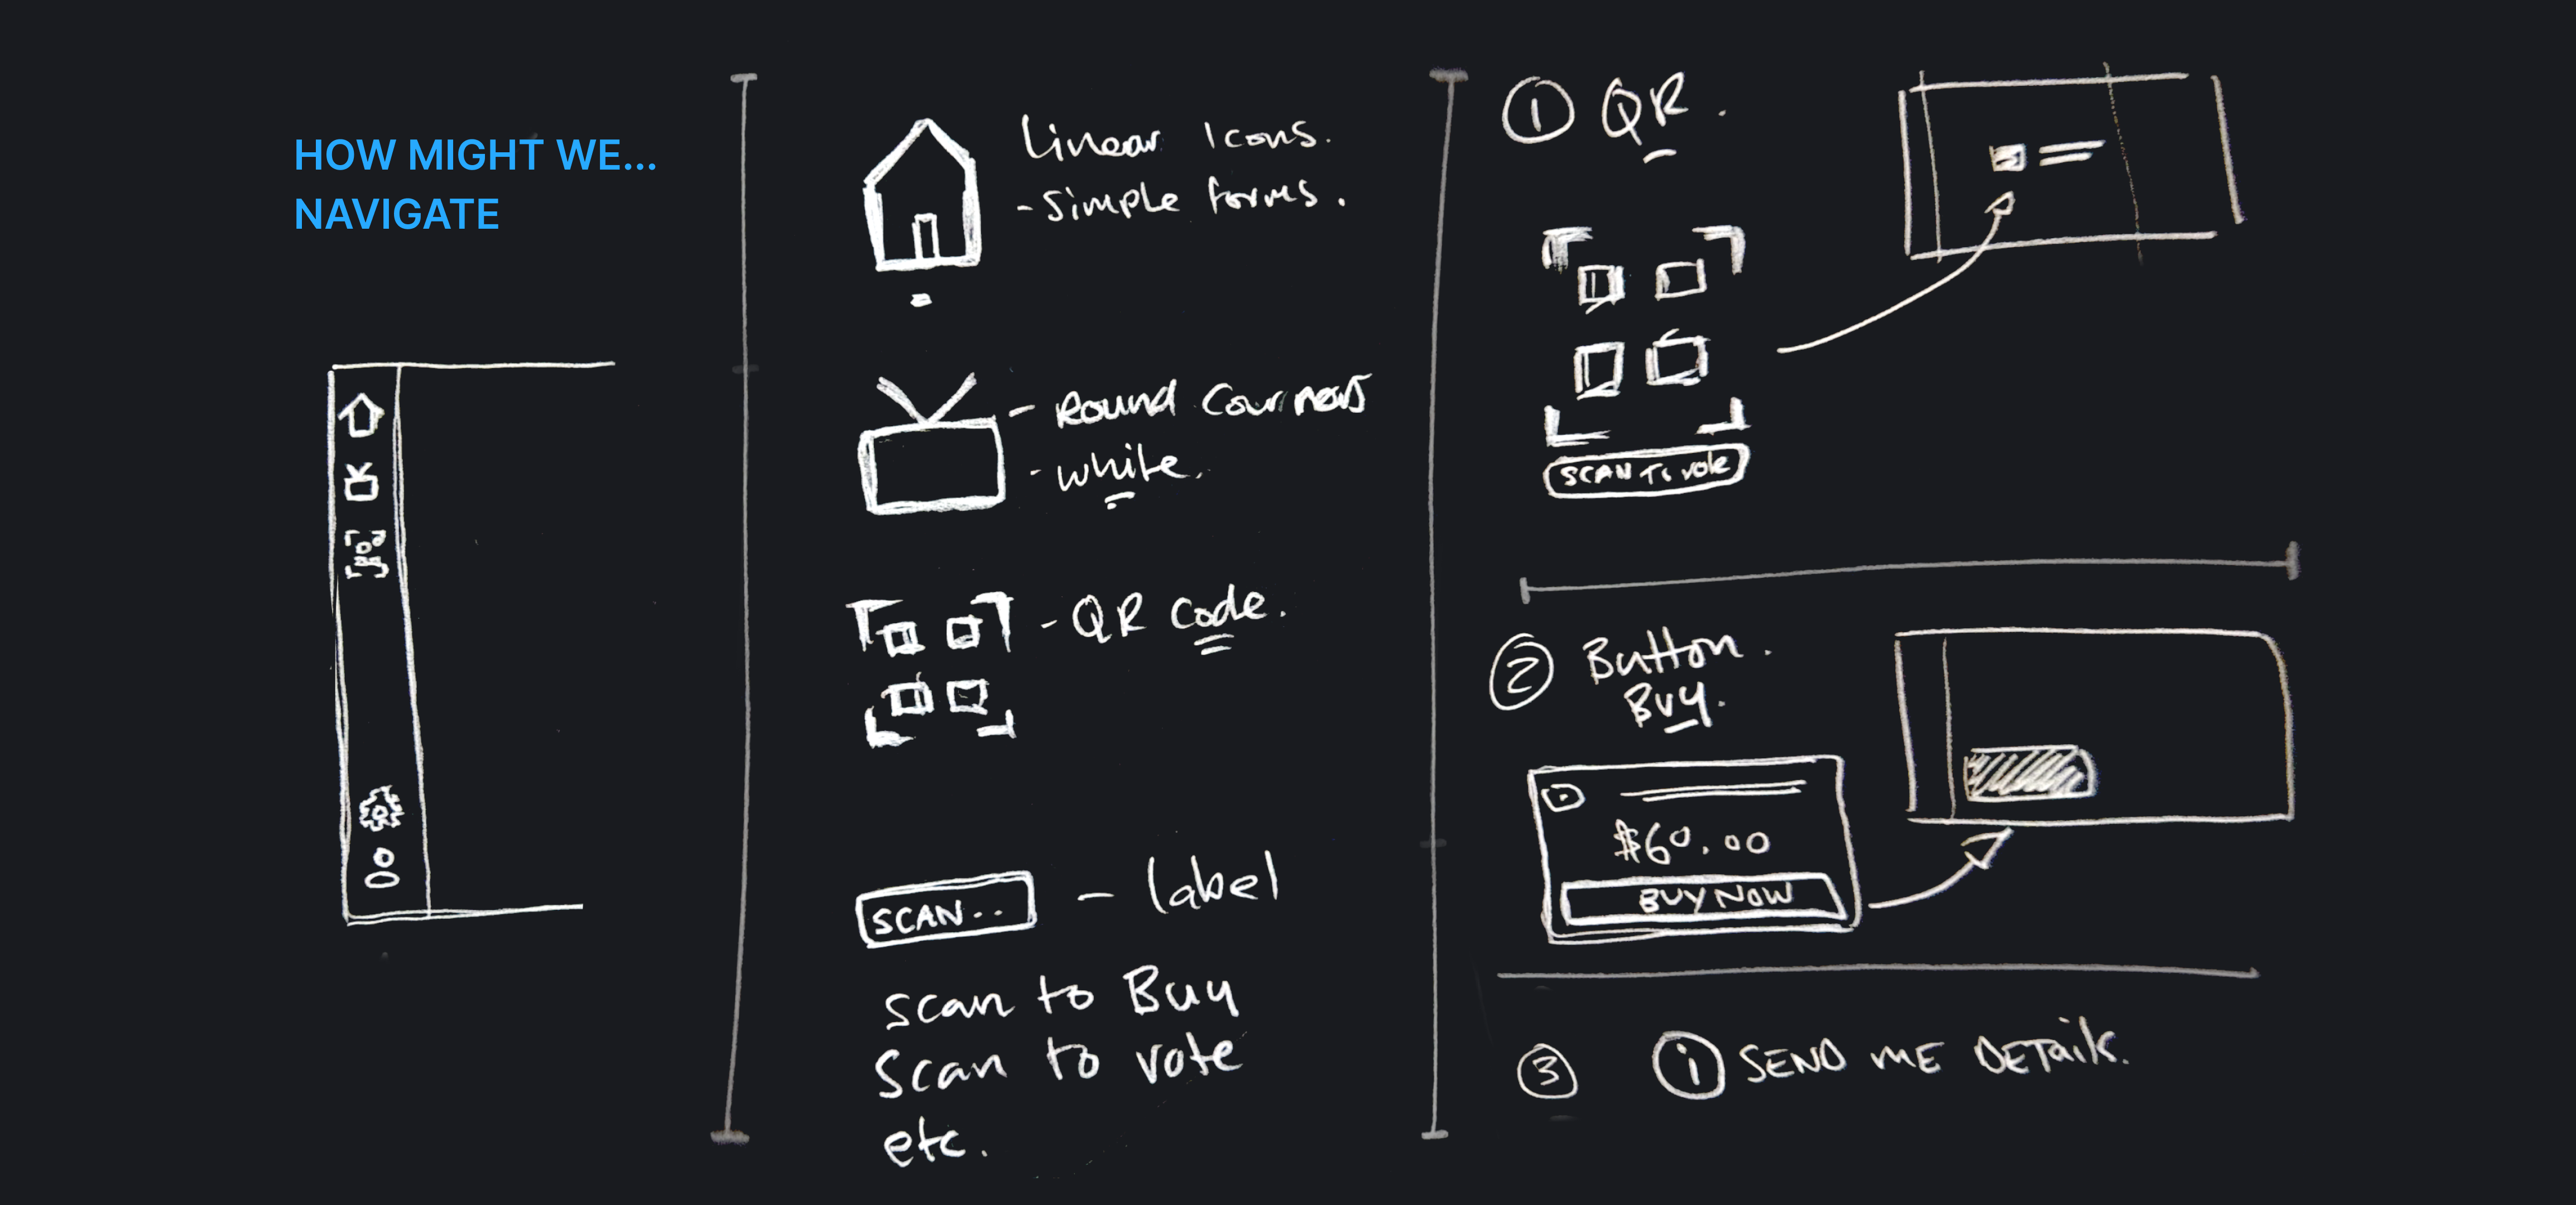 HOW MIGHT WE...
NAVIGATE
Linear Icons.
- Simple forms.
- Round Courners
- white.
- QR Code.
SCAN..
- label
scan to Buy
Scan to vote
etc.
1 QR.
SCAN To vote
2 Button.
Buy.
$60.00
BUY NOW
3 i SEND ME DETAils.